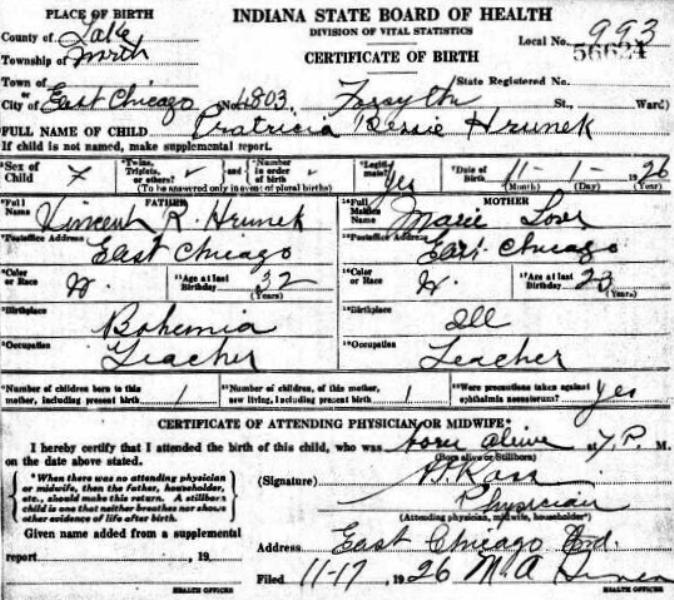 PLACE OF BIRTH
INDIANA STATE BOARD OF HEALTH
DIVISION OF VITAL STATISTICS
CERTIFICATE OF BIRTH
County of Lake
Local No. 993
56624
Township of North
Town of
or
State Registered No.
City of East Chicago (No. 4803 Forsyth St., Ward)
FULL NAME OF CHILD Pratricia Bessie Hrunek
If child is not named, make supplemental report.
Sex of Child
Twins, Triplets, or others? and Number in order of birth
(To be answered only in event of plural births)
Legitimate? Yes
Date of Birth 11 - 1 - 1926
(Month) (Day) (Year)
FATHER
Full Name Vincent R. Hrunek
MOTHER
Full Maiden Name Marie
Postoffice Address East Chicago
Postoffice Address East Chicago
Color or Race W.
Age at last Birthday 32
(Years)
Color or Race W.
Age at last Birthday 23
(Years)
Birthplace Bohemia
Birthplace Ill
Occupation Teacher
Occupation Teacher
Number of children born to this mother, including present birth 1
Number of children, of this mother, now living, including present birth 1
Were precautions taken against ophthalmia neonatorum? Yes
CERTIFICATE OF ATTENDING PHYSICIAN OR MIDWIFE*
I hereby certify that I attended the birth of this child, who was born alive at 7 P. M.
(Born alive or Stillborn)
on the date above stated.
*When there was no attending physician
or midwife, then the father, householder,
etc., should make this return. A stillborn
child is one that neither breathes nor shows
other evidence of life after birth.
(Signature)
Physician
(Attending physician, midwife, householder*)
Given name added from a supplemental
report , 19
HEALTH OFFICER
Address East Chicago Ind.
Filed 11-17, 1926 M A
HEALTH OFFICER